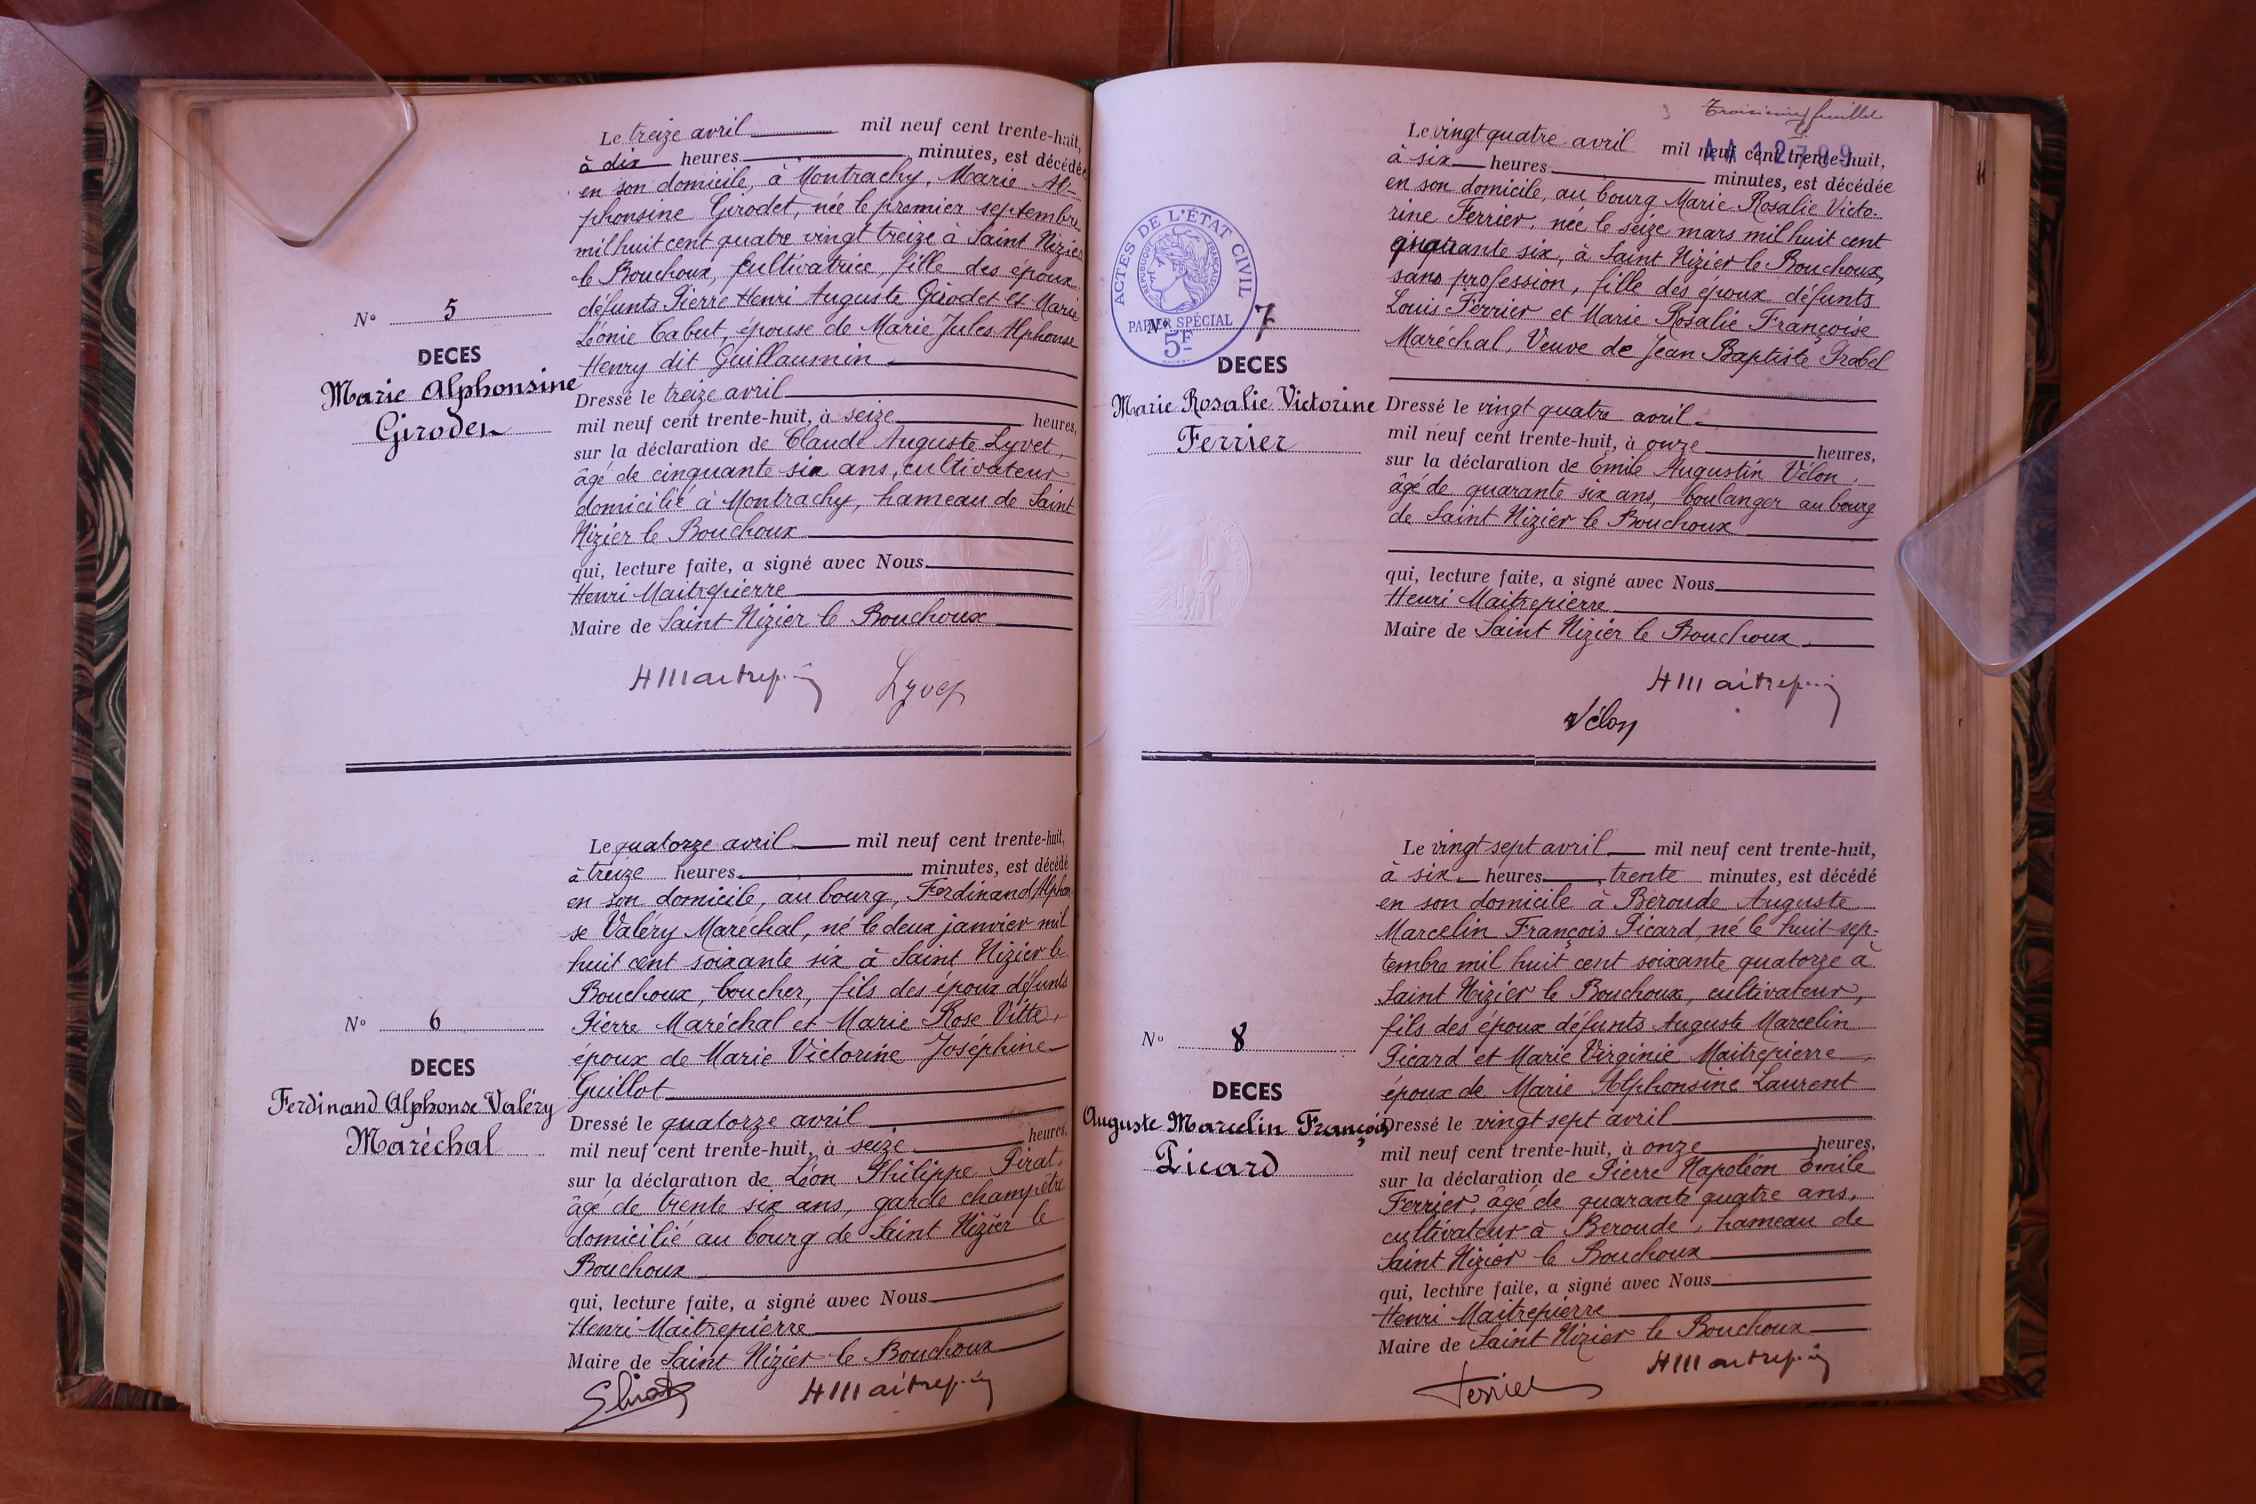 Le treize avril mil neuf cent trente-huit,
à dix heures minutes, est décédée
en son domicile, à Montrachy, Marie Al-
phonsine Girodet, née le premier septembre
mil huit cent quatre vingt treize à Saint Nizier
le Bouchoux, cultivatrice, fille des époux
défunts Pierre Henri Auguste Girodet et Marie
Léonie Cabut, épouse de Marie Jules Alphonse
Henry dit Guillaumin
N° 5
DECES
Marie Alphonsine
Giroden
Dressé le treize avril
mil neuf cent trente-huit, à seize heures,
sur la déclaration de Claude Auguste Lyvet,
âgé de cinquante six ans, cultivateur
domicilié à Montrachy, hameau de Saint
Nizier le Bouchoux
qui, lecture faite, a signé avec Nous
Henri Maitrepierre
Maire de Saint Nizier le Bouchoux
Lyvet
Le quatorze avril mil neuf cent trente-huit,
à treize heures minutes, est décédé
en son domicile, au bourg, Ferdinand Alphon
se Valéry Maréchal, né le deux janvier mil
huit cent soixante six à Saint Nizier le
Bouchoux, boucher, fils des époux défunts
Pierre Maréchal et Marie Rose Vitte,
époux de Marie Victorine Joséphine
Guillot
N° 6
DECES
Ferdinand Alphonse Valéry
Maréchal
Dressé le quatorze avril
mil neuf cent trente-huit, à seize heures,
sur la déclaration de Léon Philippe Pirat,
âgé de trente six ans, garde champêtre
domicilié au bourg de Saint Nizier le
Bouchoux
qui, lecture faite, a signé avec Nous
Henri Maitrepierre
Maire de Saint Nizier le Bouchoux
3 Troisième feuillet
AA 12799
Le vingt quatre avril mil neuf cent trente-huit,
à six heures minutes, est décédée
en son domicile, au bourg Marie Rosalie Victo-
rine Ferrier, née le seize mars mil huit cent
quarante six, à Saint Nizier le Bouchoux,
sans profession, fille des époux défunts
Louis Ferrier et Marie Rosalie Françoise
Maréchal, Veuve de Jean Baptiste Prabel
ACTES DE L'ÉTAT CIVIL
RÉPUBLIQUE FRANÇAISE
PAPIER SPÉCIAL
5F
N° 7
DECES
Marie Rosalie Victorine
Ferrier
Dressé le vingt quatre avril
mil neuf cent trente-huit, à onze heures,
sur la déclaration de Emile Augustin Vélon,
âgé de quarante six ans, boulanger au bourg
de Saint Nizier le Bouchoux
qui, lecture faite, a signé avec Nous
Henri Maitrepierre
Maire de Saint Nizier le Bouchoux,
Vélon
Le vingt sept avril mil neuf cent trente-huit,
à six heures trente minutes, est décédé
en son domicile à Beroude Auguste
Marcelin François Picard, né le huit sep-
tembre mil huit cent soixante quatorze à
Saint Nizier le Bouchoux, cultivateur,
fils des époux défunts Auguste Marcelin
Picard et Marie Virginie Maitrepierre,
époux de Marie Alphonsine Laurent
N° 8
DECES
Auguste Marcelin François
Picard
Dressé le vingt sept avril
mil neuf cent trente-huit, à onze heures,
sur la déclaration de Pierre Napoléon Emile
Ferrier, âgé de quarante quatre ans,
cultivateur à Beroude, hameau de
Saint Nizier le Bouchoux
qui, lecture faite, a signé avec Nous
Henri Maitrepierre
Maire de Saint Nizier le Bouchoux
Ferrier